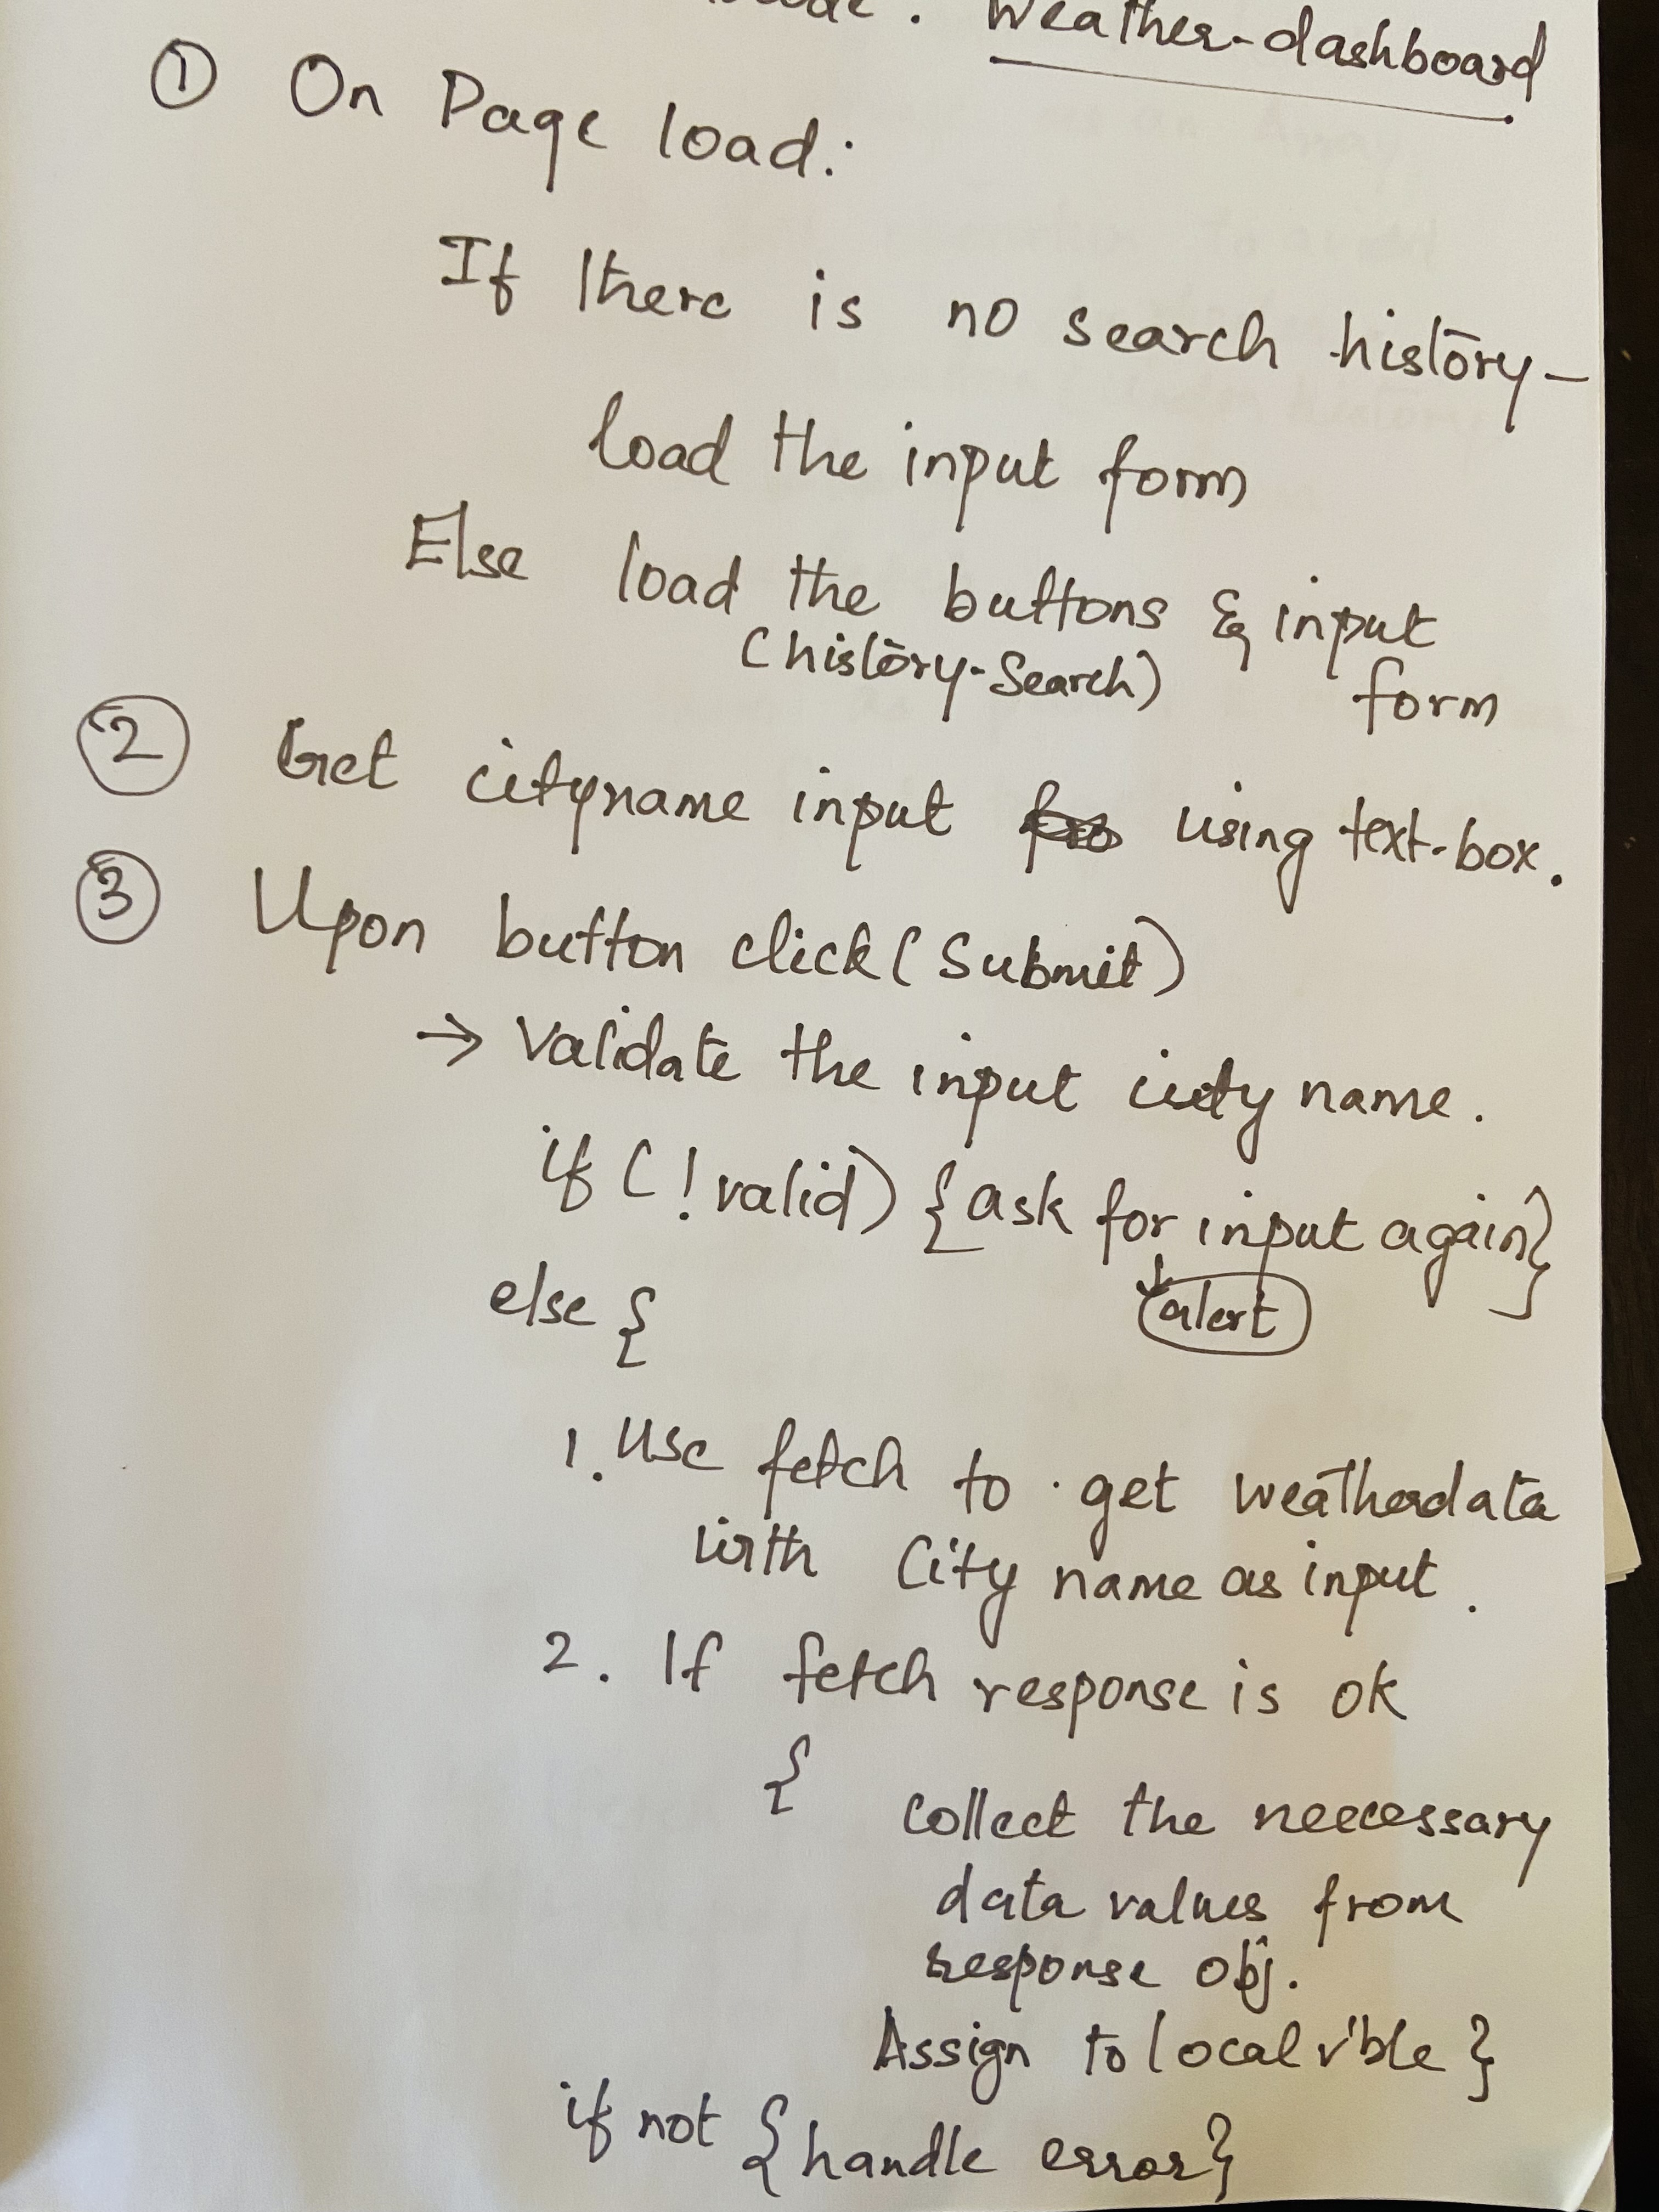 Weather-dashboard
① On Page load:
If there is no search history-
load the input form
Else load the buttons & input
(history-Search) form
② Get cityname input using text-box.
③ Upon button click (Submit)
→ Validate the input city name.
if (!valid) {ask for input again}
alert
else {
1. Use fetch to get weatherdata
with City name as input.
2. If fetch response is ok
{ collect the neecessary
data values from
response obj.
Assign to local v'ble }
if not {handle error}